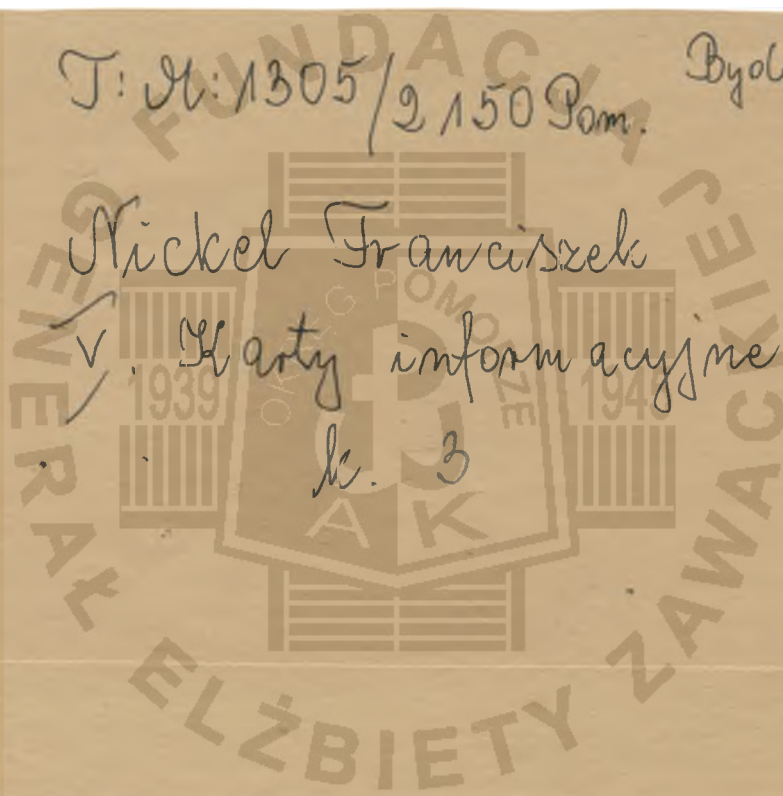 T: M: 1305/2150 Pom.
Byd
Nickel Franciszek
V. Karty informacyjne
k. 3
FUNDACJA
GENERAŁ ELŻBIETY ZAWACKIEJ
OKRĘG POMORZE
1939
1945
AK